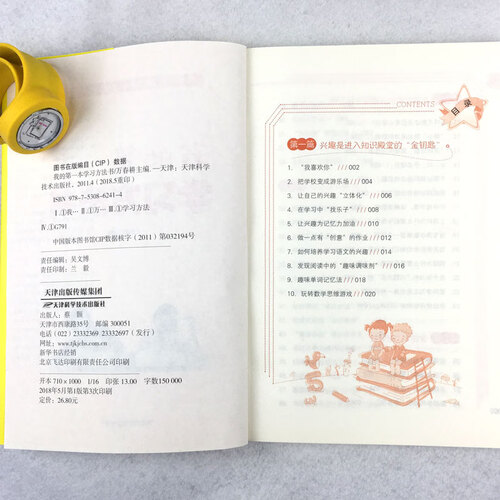 图书在版编目(CIP)数据
我的第一本学习方法书/万春耕主编.—天津:天津科学
技术出版社,2011.4(2018.5重印)
ISBN 978-7-5308-6241-4
Ⅰ.①我… Ⅱ.①万… Ⅲ.①学习方法
Ⅳ.①G791
中国版本图书馆CIP数据核字(2011)第032194号
责任编辑:吴文博
责任印制:兰 毅
天津出版传媒集团
天津科学技术出版社
出版人:蔡 颢
天津市西康路35号 邮编 300051
电话(022)23332369 23332697(发行)
网址:www.tjkjcbs.com.cn
新华书店经销
北京飞达印刷有限责任公司印刷
开本 710×1000 1/16 印张 13.00 字数150 000
2018年5月第1版第3次印刷
定价:26.80元
CONTENTS
目录
第一篇 兴趣是进入知识殿堂的“金钥匙”
1. “我喜欢你” /// 002
2. 把学校变成游乐场 /// 004
3. 让自己的兴趣“立体化” /// 006
4. 在学习中“找乐子” /// 008
5. 让兴趣为记忆力加油 /// 010
6. 做一点有“创意”的作业 /// 012
7. 如何培养学习语文的兴趣 /// 014
8. 发现阅读中的“趣味调味剂” /// 016
9. 趣味单词记忆法 /// 018
10. 玩转数学思维游戏 /// 020